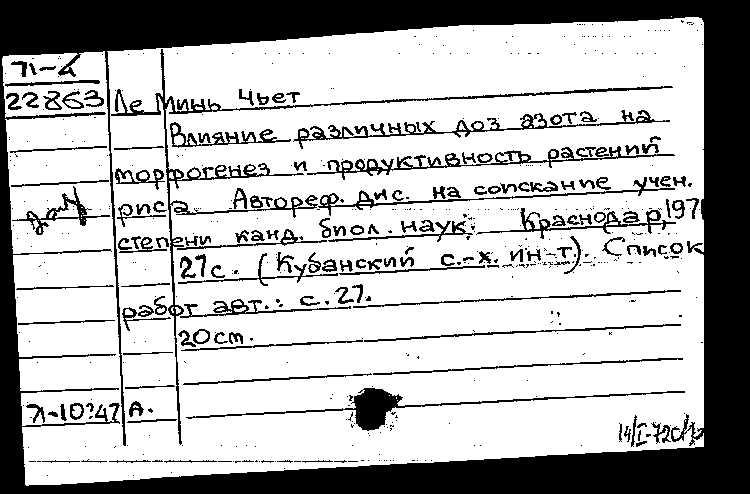 71-4
22863 Ле Минь Чьет
Влияние различных доз азота на
морфогенез и продуктивность растений
риса. Автореф. дис. на соискание учен.
степени канд. биол. наук. Краснодар, 1971
27с. (Кубанский с.-х. ин-т). Список
работ авт.: с.27.
20см.
А.